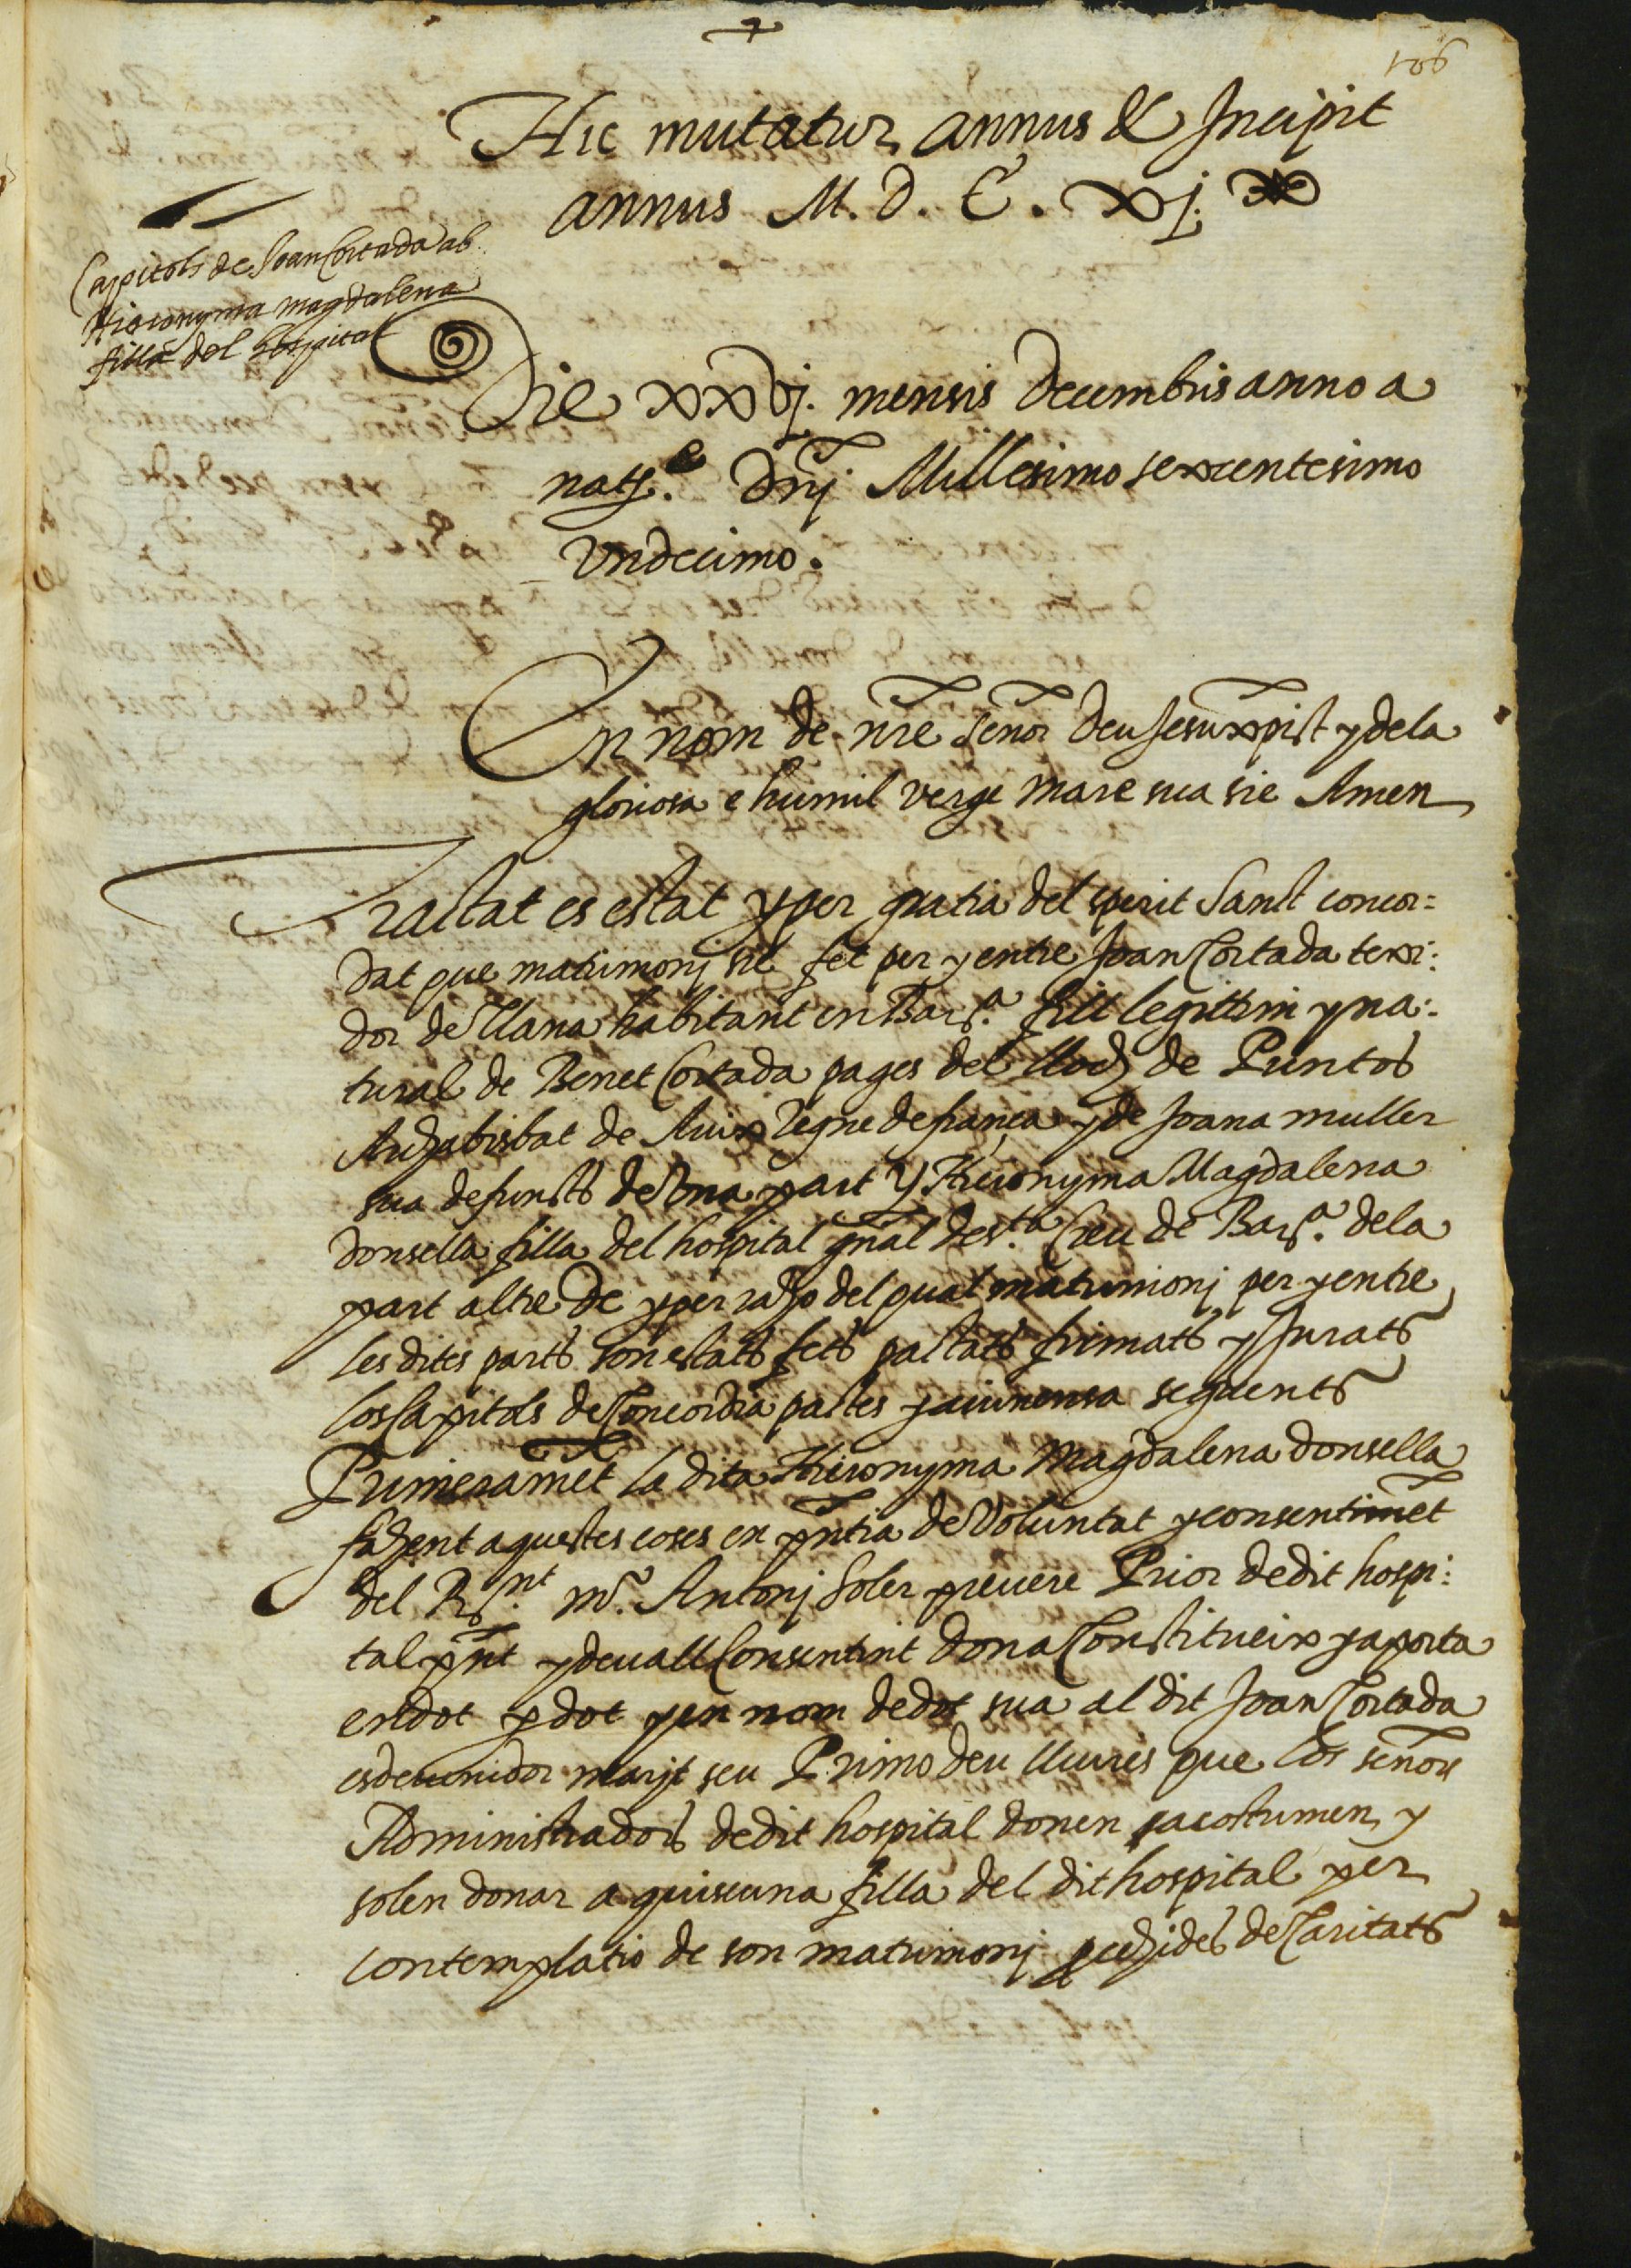 106
Hic mutatur annus & Incipit
annus M. D. C. XJ.
Capitols de Joan Cortada ab
Hieronyma magdalena
filla del hospital
Die XXVJ. mensis Decembris anno a
nat.e Dnj Millesimo sexcentesimo
Undecimo.
En nom de nre senor Deu Jesuxpist y de la
gloriosa e humil verge mare sua sie Amen
Tractat es estat y per gratia del sperit Sanct concor=
dat que matrimonj sie fet per y entre Joan Cortada texi:
dor de llana habitant en Bar.a fill legittim y na:
tural de Benet Cortada pages del lloch de Puntos
Archabisbat de Auix regne de frança y de Joana muller
sua defuncts de Una part Y Hieronyma Magdalena
donsella filla del hospital gnal de s.ta Creu de Bar.a de la
part altre De y per raho del qual matrimonj per y entre
les dites parts son estats fets pactats firmats y Jurats
los Capitols de Concordia pactes y aiunensa seguents
Primeramet la dita Hieronyma Magdalena donsella
fahent aquestes coses en pntia de Voluntat y consentimet
del R.nt m.o Antonj Soler preuere Prior de dit hospi:
tal pnt y deuall Consentint dona Constitueix y aporta
en dot p dot y en nom de dot sua al dit Joan Cortada
esdeuenidor marit seu Primo deu lliures que los señors
Administradors de dit hospital donen y acostumen y
solen donar a quiscuna filla del dit hospital per
contemplatio de son matrimonj procehides de Caritats